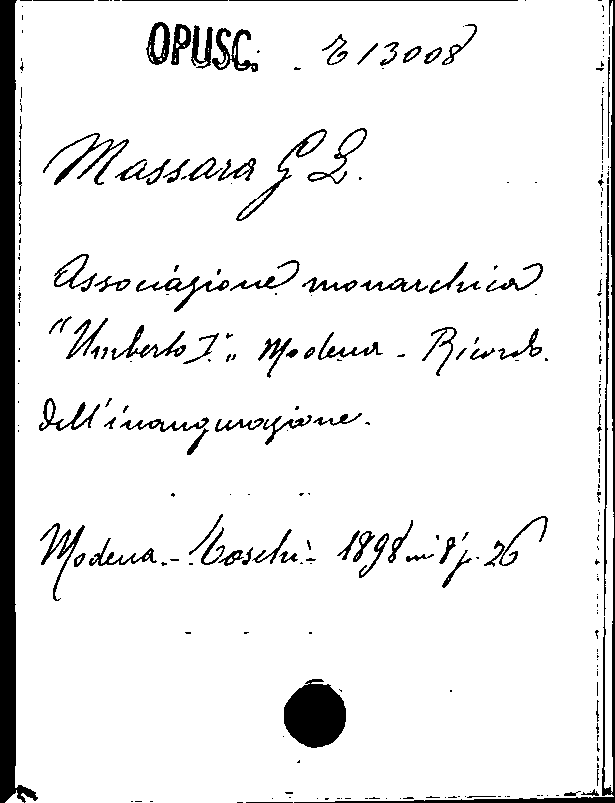 OPUSC. E 13008
Massara G E.
Associazione monarchica
"Umberto I„ Modena - Ricordo
dell'inaugurazione.
Modena - Toschi - 1898 in 8° p. 26